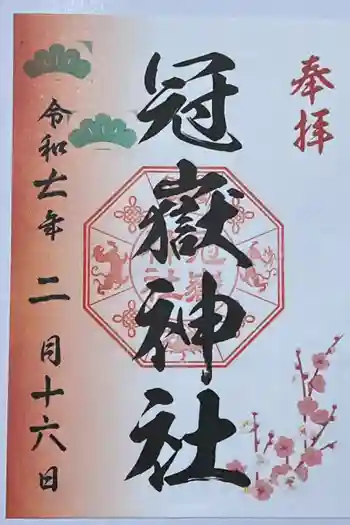 奉拝
冠嶽神社
令和七年二月十六日